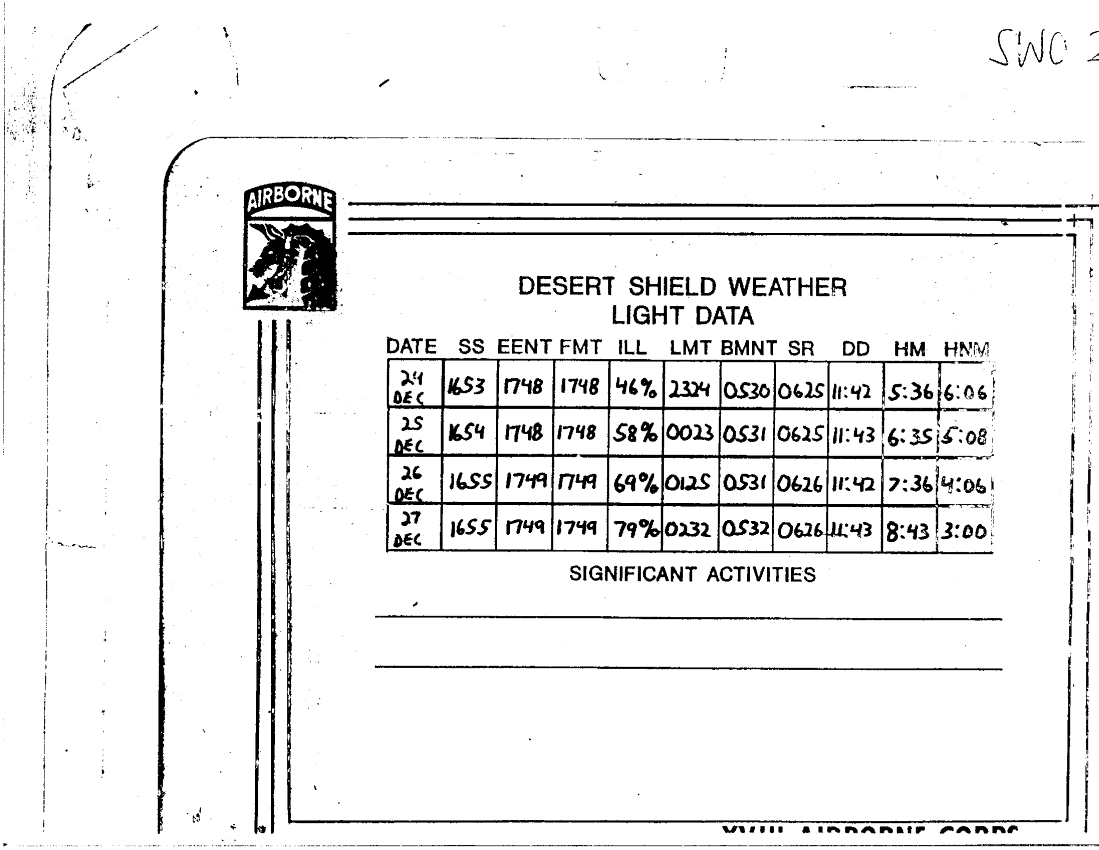 SWO
AIRBORNE
DESERT SHIELD WEATHER
LIGHT DATA
DATE SS EENT FMT ILL LMT BMNT SR DD HM HNM
24 DEC 1653 1748 1748 46% 2324 0530 0625 11:42 5:36 6:06
25 DEC 1654 1748 1748 58% 0023 0531 0625 11:43 6:35 5:08
26 DEC 1655 1749 1749 69% 0125 0531 0626 11:42 7:36 4:06
27 DEC 1655 1749 1749 79% 0232 0532 0626 11:43 8:43 3:00
SIGNIFICANT ACTIVITIES
XVIII AIRBORNE CORPS